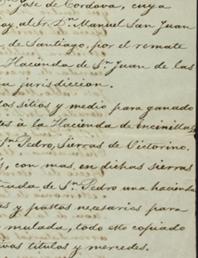 José de Cordova, cuya
oy al Sr. D. Manuel San Juan
de Santiago, por el remate
Hacienda de Sn. Juan de las
u jurisdiccion.
os sitios y medio para ganado
es á la Hacienda de encinillas
Sn. Pedro, Sierras de Victorino.
s, con mas en dichas sierras
de Sn. Pedro una hacienda
s y pastos necesarias para
mulada, todo esto copiado
vos titulos y mercedes.